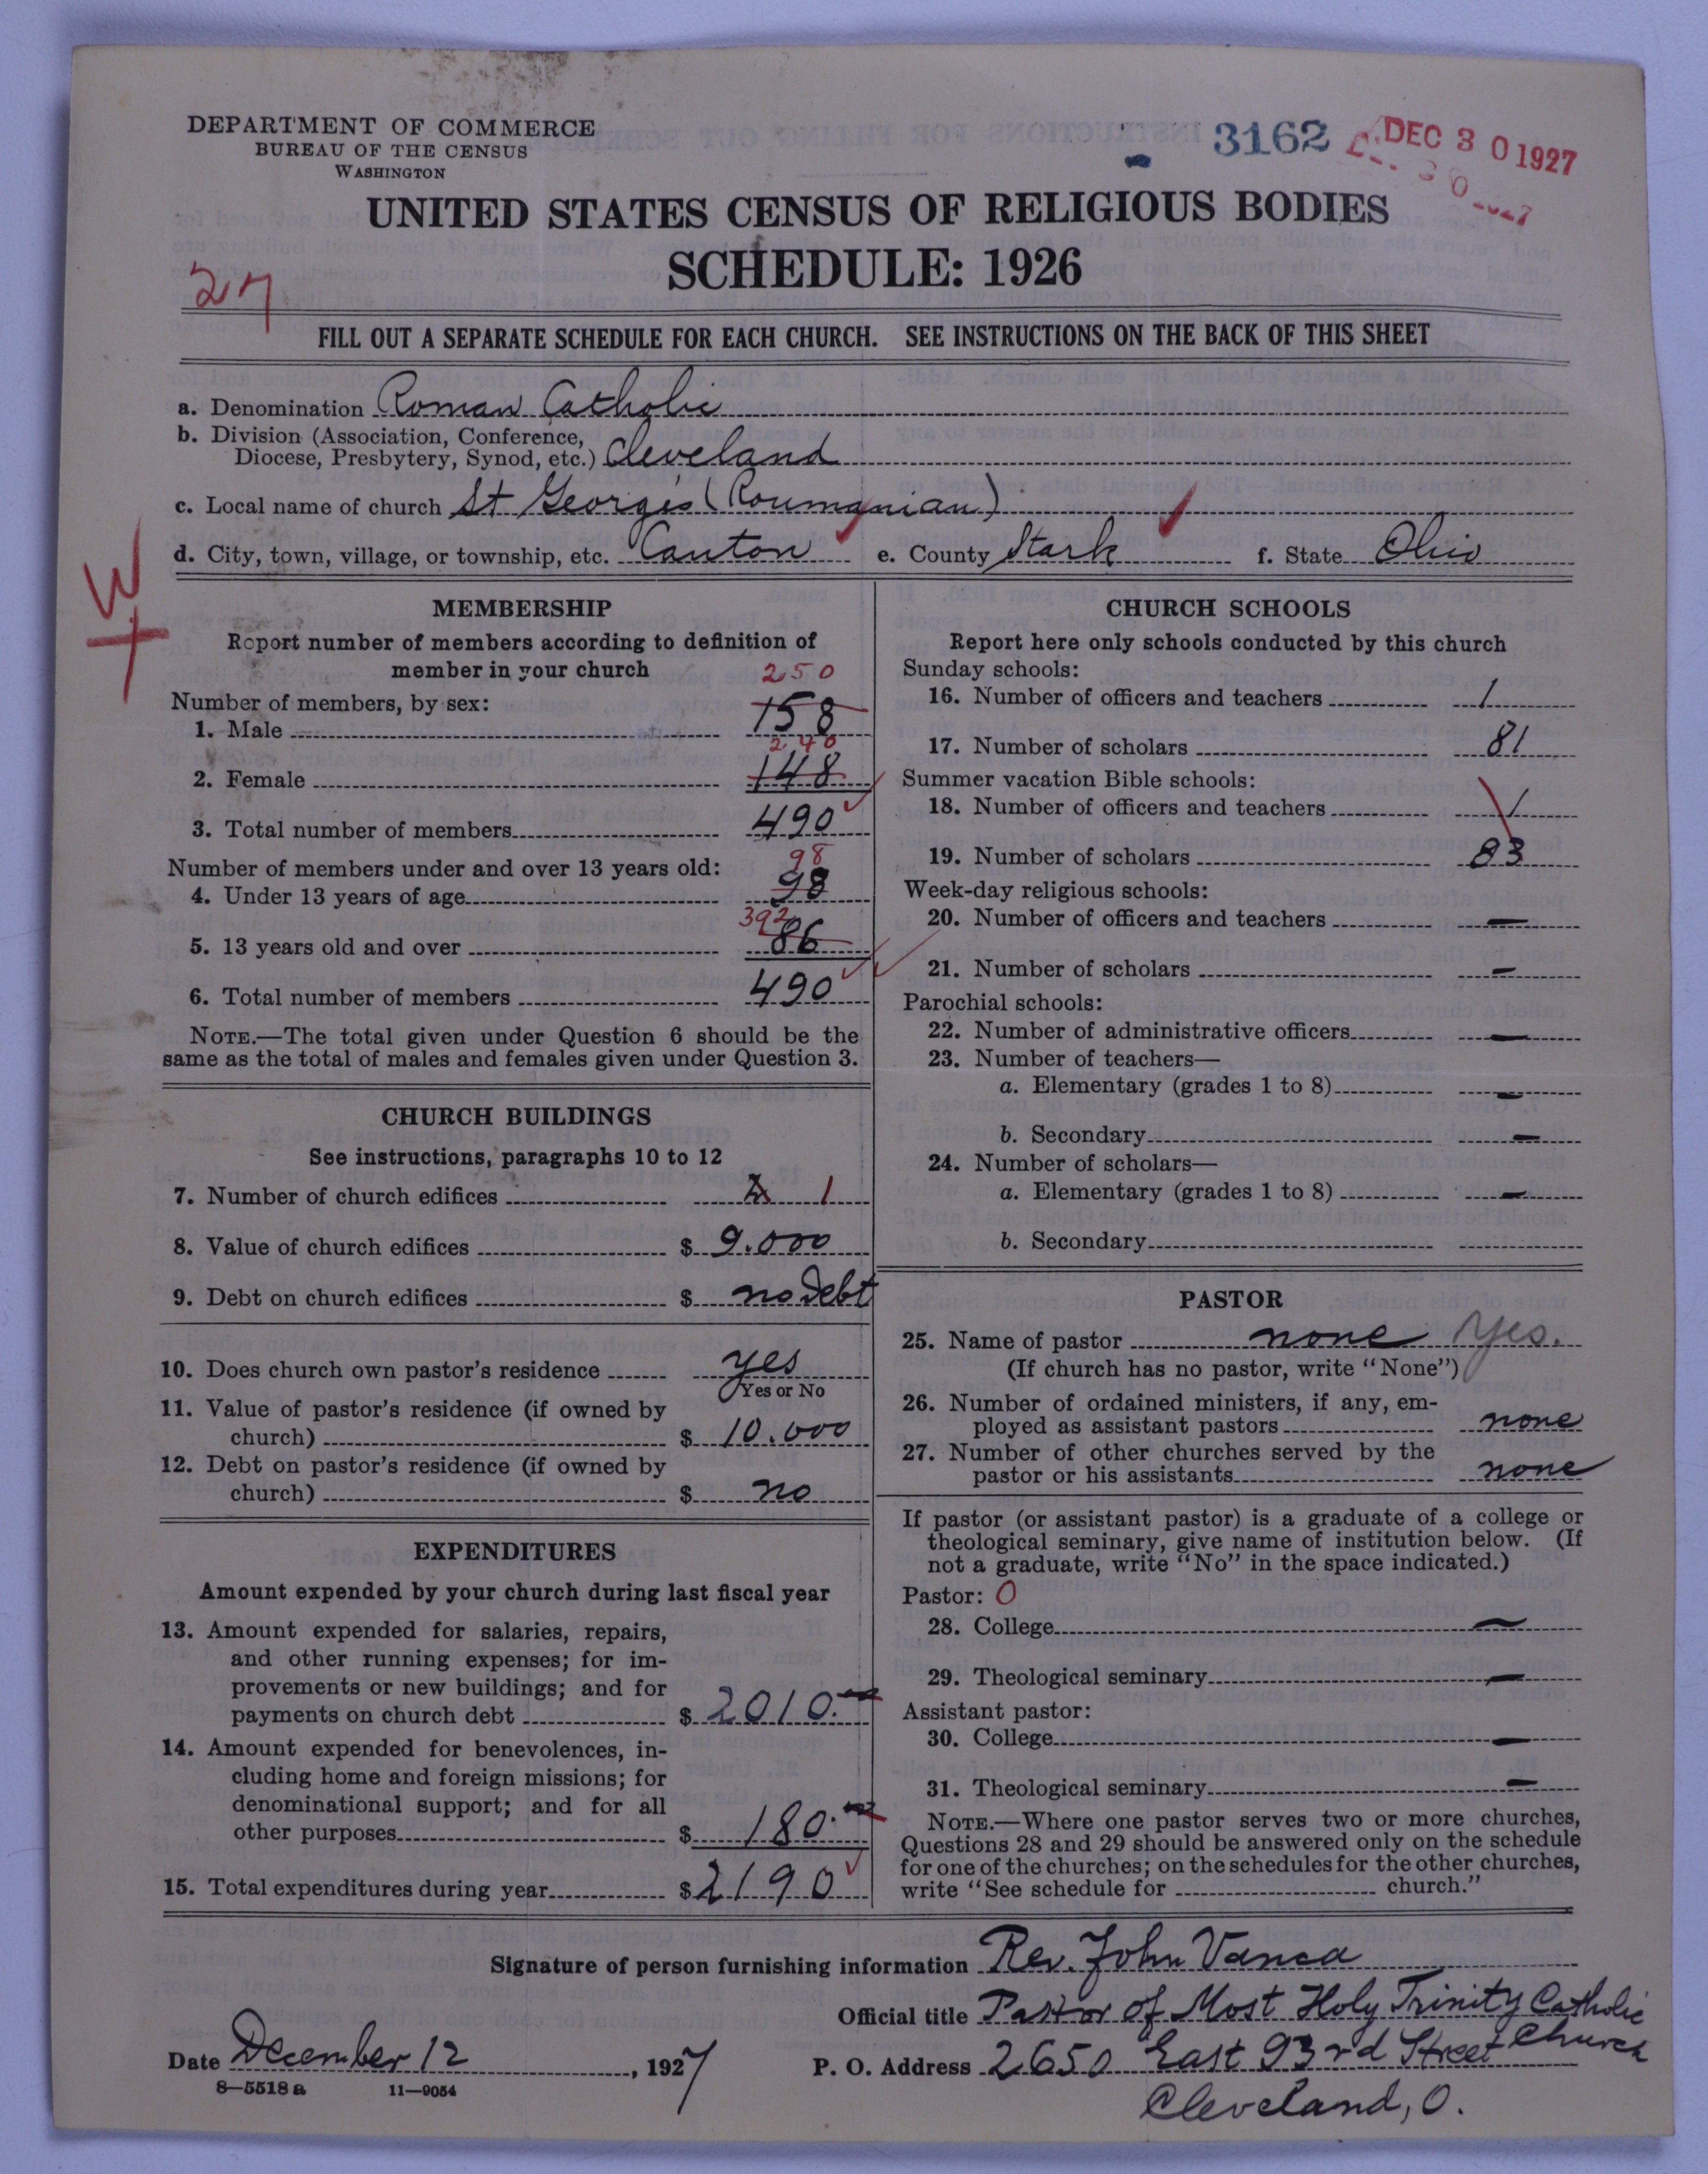 DEPARTMENT OF COMMERCE
BUREAU OF THE CENSUS
WASHINGTON
3162
DEC 30 1927
UNITED STATES CENSUS OF RELIGIOUS BODIES
SCHEDULE: 1926
27
FILL OUT A SEPARATE SCHEDULE FOR EACH CHURCH. SEE INSTRUCTIONS ON THE BACK OF THIS SHEET
a. Denomination Roman Catholic
b. Division (Association, Conference,
Diocese, Presbytery, Synod, etc.) Cleveland
c. Local name of church St Georges (Roumanian)
d. City, town, village, or township, etc. Canton e. County Stark f. State Ohio
W
MEMBERSHIP
Report number of members according to definition of
member in your church
250
Number of members, by sex:
1. Male 158
240
2. Female 148
3. Total number of members 490
Number of members under and over 13 years old:
98
4. Under 13 years of age 98
392
5. 13 years old and over 86
6. Total number of members 490
NOTE.—The total given under Question 6 should be the
same as the total of males and females given under Question 3.
CHURCH BUILDINGS
See instructions, paragraphs 10 to 12
7. Number of church edifices 1
8. Value of church edifices $ 9.000
9. Debt on church edifices $ no Debt
10. Does church own pastor's residence yes
Yes or No
11. Value of pastor's residence (if owned by
church) $ 10.000
12. Debt on pastor's residence (if owned by
church) $ no
EXPENDITURES
Amount expended by your church during last fiscal year
13. Amount expended for salaries, repairs,
and other running expenses; for im-
provements or new buildings; and for
payments on church debt $ 2010.
14. Amount expended for benevolences, in-
cluding home and foreign missions; for
denominational support; and for all
other purposes $ 180.
15. Total expenditures during year $ 2190
CHURCH SCHOOLS
Report here only schools conducted by this church
Sunday schools:
16. Number of officers and teachers 1
17. Number of scholars 81
Summer vacation Bible schools:
18. Number of officers and teachers 1
19. Number of scholars 83
Week-day religious schools:
20. Number of officers and teachers —
21. Number of scholars —
Parochial schools:
22. Number of administrative officers —
23. Number of teachers—
a. Elementary (grades 1 to 8) —
b. Secondary —
24. Number of scholars—
a. Elementary (grades 1 to 8) —
b. Secondary
PASTOR
25. Name of pastor none Yes.
(If church has no pastor, write "None")
26. Number of ordained ministers, if any, em-
ployed as assistant pastors none
27. Number of other churches served by the
pastor or his assistants none
If pastor (or assistant pastor) is a graduate of a college or
theological seminary, give name of institution below. (If
not a graduate, write "No" in the space indicated.)
Pastor: O
28. College —
29. Theological seminary —
Assistant pastor:
30. College —
31. Theological seminary —
NOTE.—Where one pastor serves two or more churches,
Questions 28 and 29 should be answered only on the schedule
for one of the churches; on the schedules for the other churches,
write "See schedule for church."
Signature of person furnishing information Rev. John Vanca
Official title Pastor of Most Holy Trinity Catholic
Church
Date December 12, 1927 P. O. Address 2650 East 93rd Street
8—5518 a 11—9054
Cleveland, O.